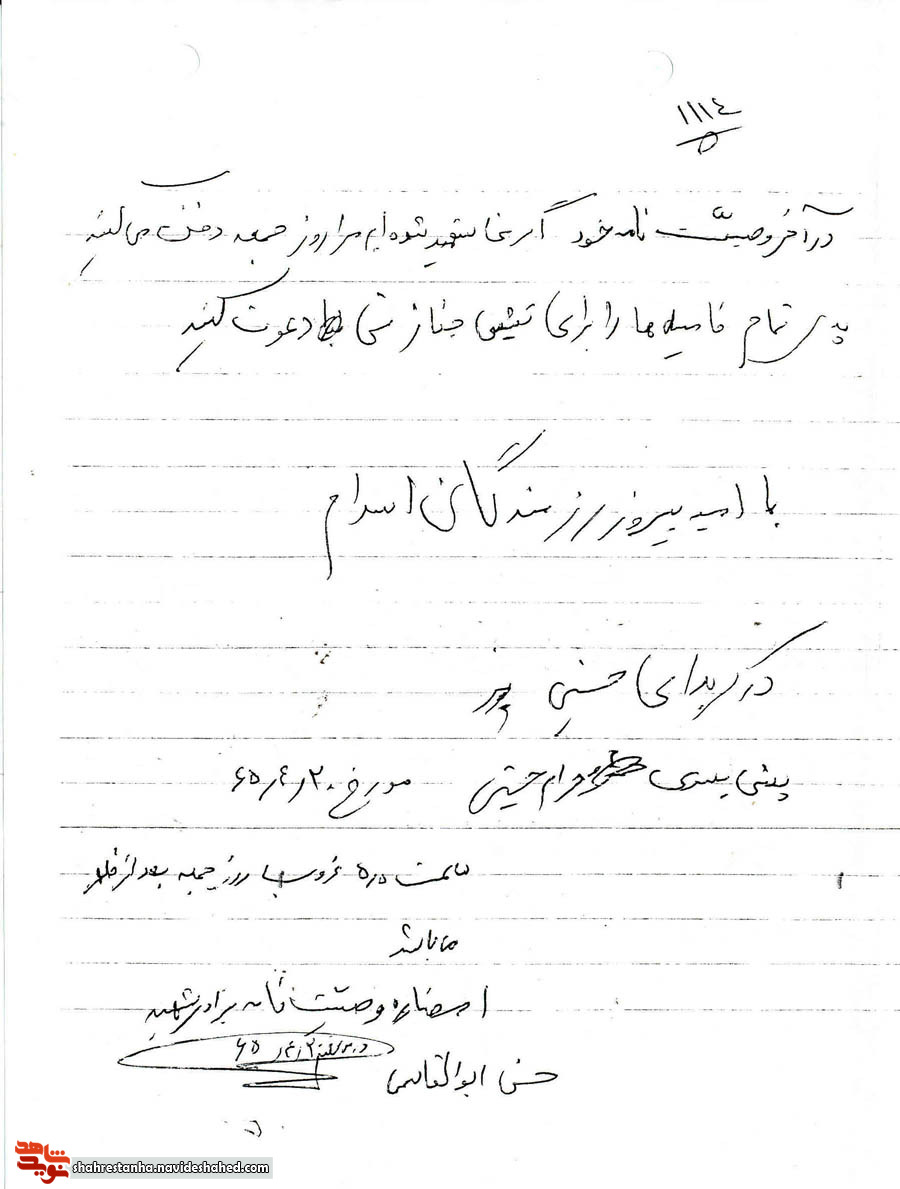 ۱۱۱۴
۵
در آخر وصیّت نامه خود اگر شهید شوم مرا روز جمعه دفن می کنید
تمام فامیل ها را برای جناز دعوت کنید
با امید پیروز رزمندگان اسلام
در کربلای حسینی
حرام حسینی مورخ ۶۵٫۴٫۲۰
ساعت غروب روز جمعه بعد از
می باشد
امضاء وصیّت نامه برادر شهید
۶۵
حسن ابوالقاسمی
شاهد
نوید
shahrestanha.navideshahed.com